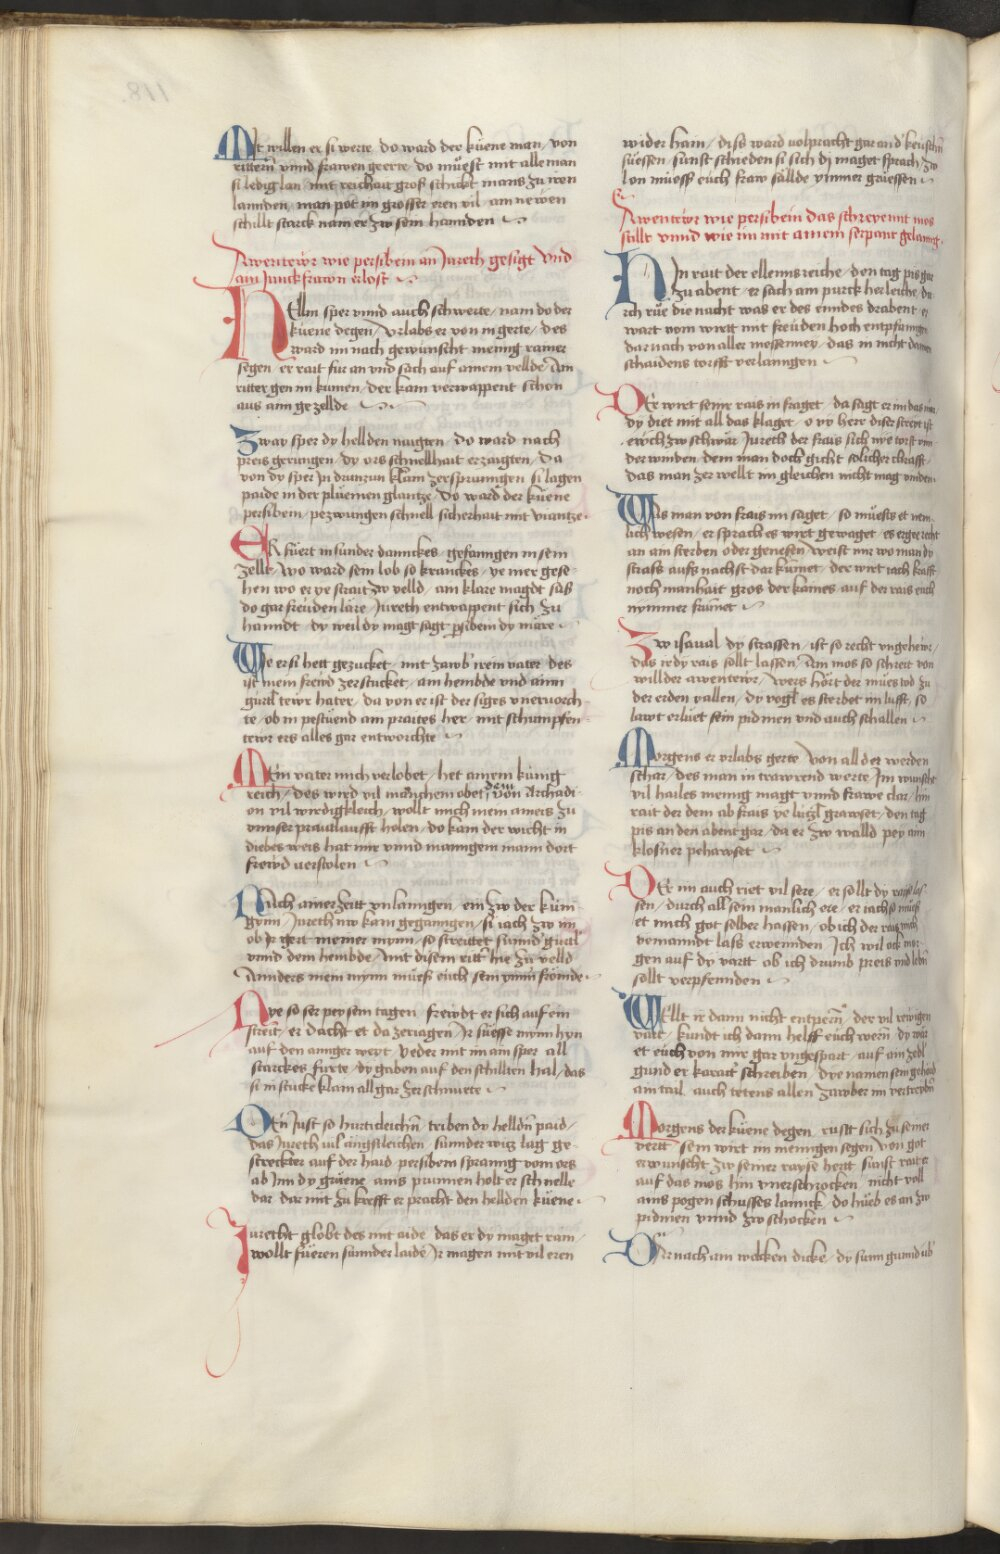 Mit willen er si werte do ward der küene man / von
rittern vnnd frawen geerte do müest mit alle man
si ledig lan / mit reichait groß schickt mans zu iren
lannden / man pot im grosser eren vil / am newen
schillt starck nam er zw sein hannden
Awentewr wie persibein an Jureth gesigt vnd
ain Junckfrawn erlost
Hellm sper vnnd auch schwerte / nam do der
küene degen / Vrlabs er von in gerte / des
ward im nach gewünscht menig rainer
segen / er rait für an vnd sach auf ainem vellde / ain
ritter gen im kumen / der kam verwappent schon
aus aim gezellde
Zway sper dy hellden naigten / do ward nach
preis gerungen / dy ors schnellhait erzaigten / da
von dy sper In drunzun klain zersprungen si lagen
paide in der plüemen glantze / do ward der küene
persibein / pezwungen schnell sicherhait mit viantze
Er füert in sunder danckes / gefanngen in sein
zellt / wo ward sein lob so kranckes / ye mer gese-
hen wo er ye strait zw velld / ain klare magdt saß
do gar freuden läre / Jureth entwappent sich zu
hanndt / dy weil dy magt sagt psibein dy märe
Wie er si hett gezucket / mit zawb irem vater / des
ist mein frewd zerstucket / ain hembde vnd ainn
gürtl tewr hat er / da von er ist der siges vneruorch
te / ob in pestüend ain praites her / mit schimpfen-
tewr ers alles gar entworchte
Mein vater mich verlobet / het ainem künig
reich / des wird vil manchem obet / dem von Archadi-
on vil wirdigkleich / wollt mich mein amers zu
vnnser prautlaufft holen / do kam der wicht in
diebes weis hat mir vnnd manngem mann dort
frewd verstolen
Auch ainer zeitt vnlanngen / ein zw der küni-
gynn / Jureth nw kam geganngen / si iach zw im
ob Ir gert meiner mynn / so streittet sunnd' gürtl
vnnd dem hembde / mit disem ritt' hie zu velld
Annders mein mynn müess euch sein ymm' frömde
Nye so ser pey sein tagen / frewdt er sich auf ein
streit / er dacht et da zeriagen / Ir süesse mynn hyn
auf den anger weyt / yeder nit im ain sper all
starckes fürte / dy gaben auf den schilltten hal / das
si in stucke klain all gar zerschnurte
Den Just so hurticleichn / triben dy helldn paid /
das Jureth vil ängstleichen / sunnder witz lag ge-
streckter auf der haid / persibein spranng vom ors
ab Inn dy grüene / ains prunnen holt er schnelle
dar / dar mit zu krefft er pracht den hellden küene
Jurecht globt des mit aide / das er dy maget rain /
wollt füeren sunnder laide / Ir magen mit vil eren
wider haim / diss ward volpracht gar and' keuschn
süessen / sunst schieden si sich dy maget sprach / zw
lon müess euch fraw sällde ymmer grüessen
Awentewr wie persibein das schreyennt mos
stillt vnnd wie im mit ainem serpant gelanng
Hin rait der ellenns reiche / den tag pis gar
zu abent / er sach ain purck herleiche / du-
rch rüe die nacht was er des enndes drabent / er
wart vom wirtt mit freuden hoch entpfanngen
darnach von aller messenney / das in nicht dannen
schaidens torfft verlanngen
Der wirt seine rais in fraget / da sagt er im das mär
dy diet mit all das klaget / o vy herr diser streyt ist
euch zw schwär / Jureth der frais sich nye torst vnn-
der winden / dem man doch gicht solicher chrafft
das man zer wellt im gleichen nicht mag vinden
Was man von frais im saget / so müests et nem-
lich wesen / er sprach es wirt gewaget / es ergee recht
an ain sterben oder genesen / weist mir wo man dy
strass aufs nachst dar kümet / der wirt iach krafft
noch manhait gros der kaines auf der rais euch
nymmer frümet
Zw isaual dy strassen / ist so recht vngehewr /
das ir dy rais sollt lassen / ain mos so schreit von
willder awentewr / wers hört der mues tod zu
der erden vallen / dy vogl es sterbet im lufft / so
lawt erlüet sein pidmen vnd auch schallen
Morgens er vrlabs gerte / von all der werden
schar / des man in trawrend werte / Im wunscht
vil hailes menig magt vnnd frawe clar / hin
rait der dem ab frais ye lützl grawset / den tag
pis an den abent gar / da er zw walld pey aim
klosner pehawset
Der im auch riet vil sere / er sollt dy rayse las-
sen / durch all sein manlich ere / er iach so müess
et mich got selber hassen / ob ich der rais mich
yemanndt lass erwennden / Ich wil ock mor-
gen auf dy vartt / ob ich drumb preis vnd lebn
sollt verpfennden
Wellt ir dann nicht entpern / der vil rewigen
vart / kundt ich dann helff euch wern / dy wär
et euch von mir gar vngespart / auf ain zedl
gund er karact' schreiben / dye namen sein gehaid
ain tail / auch tetens allen zawber im vertreybn
Morgens der küene degen / rust sich zu seiner
vertt / sein wirt im menigen segen / von got
erwunscht zw seiner rayse hertt / sunst rait er
auf das mos hin vnerschrocken / nicht voll
ains pogen schusses lannck / do hueb es an zw
pidmen vnnd zw schocken
Darnach ain wolcken dicke / dy sunn gunnd üb'